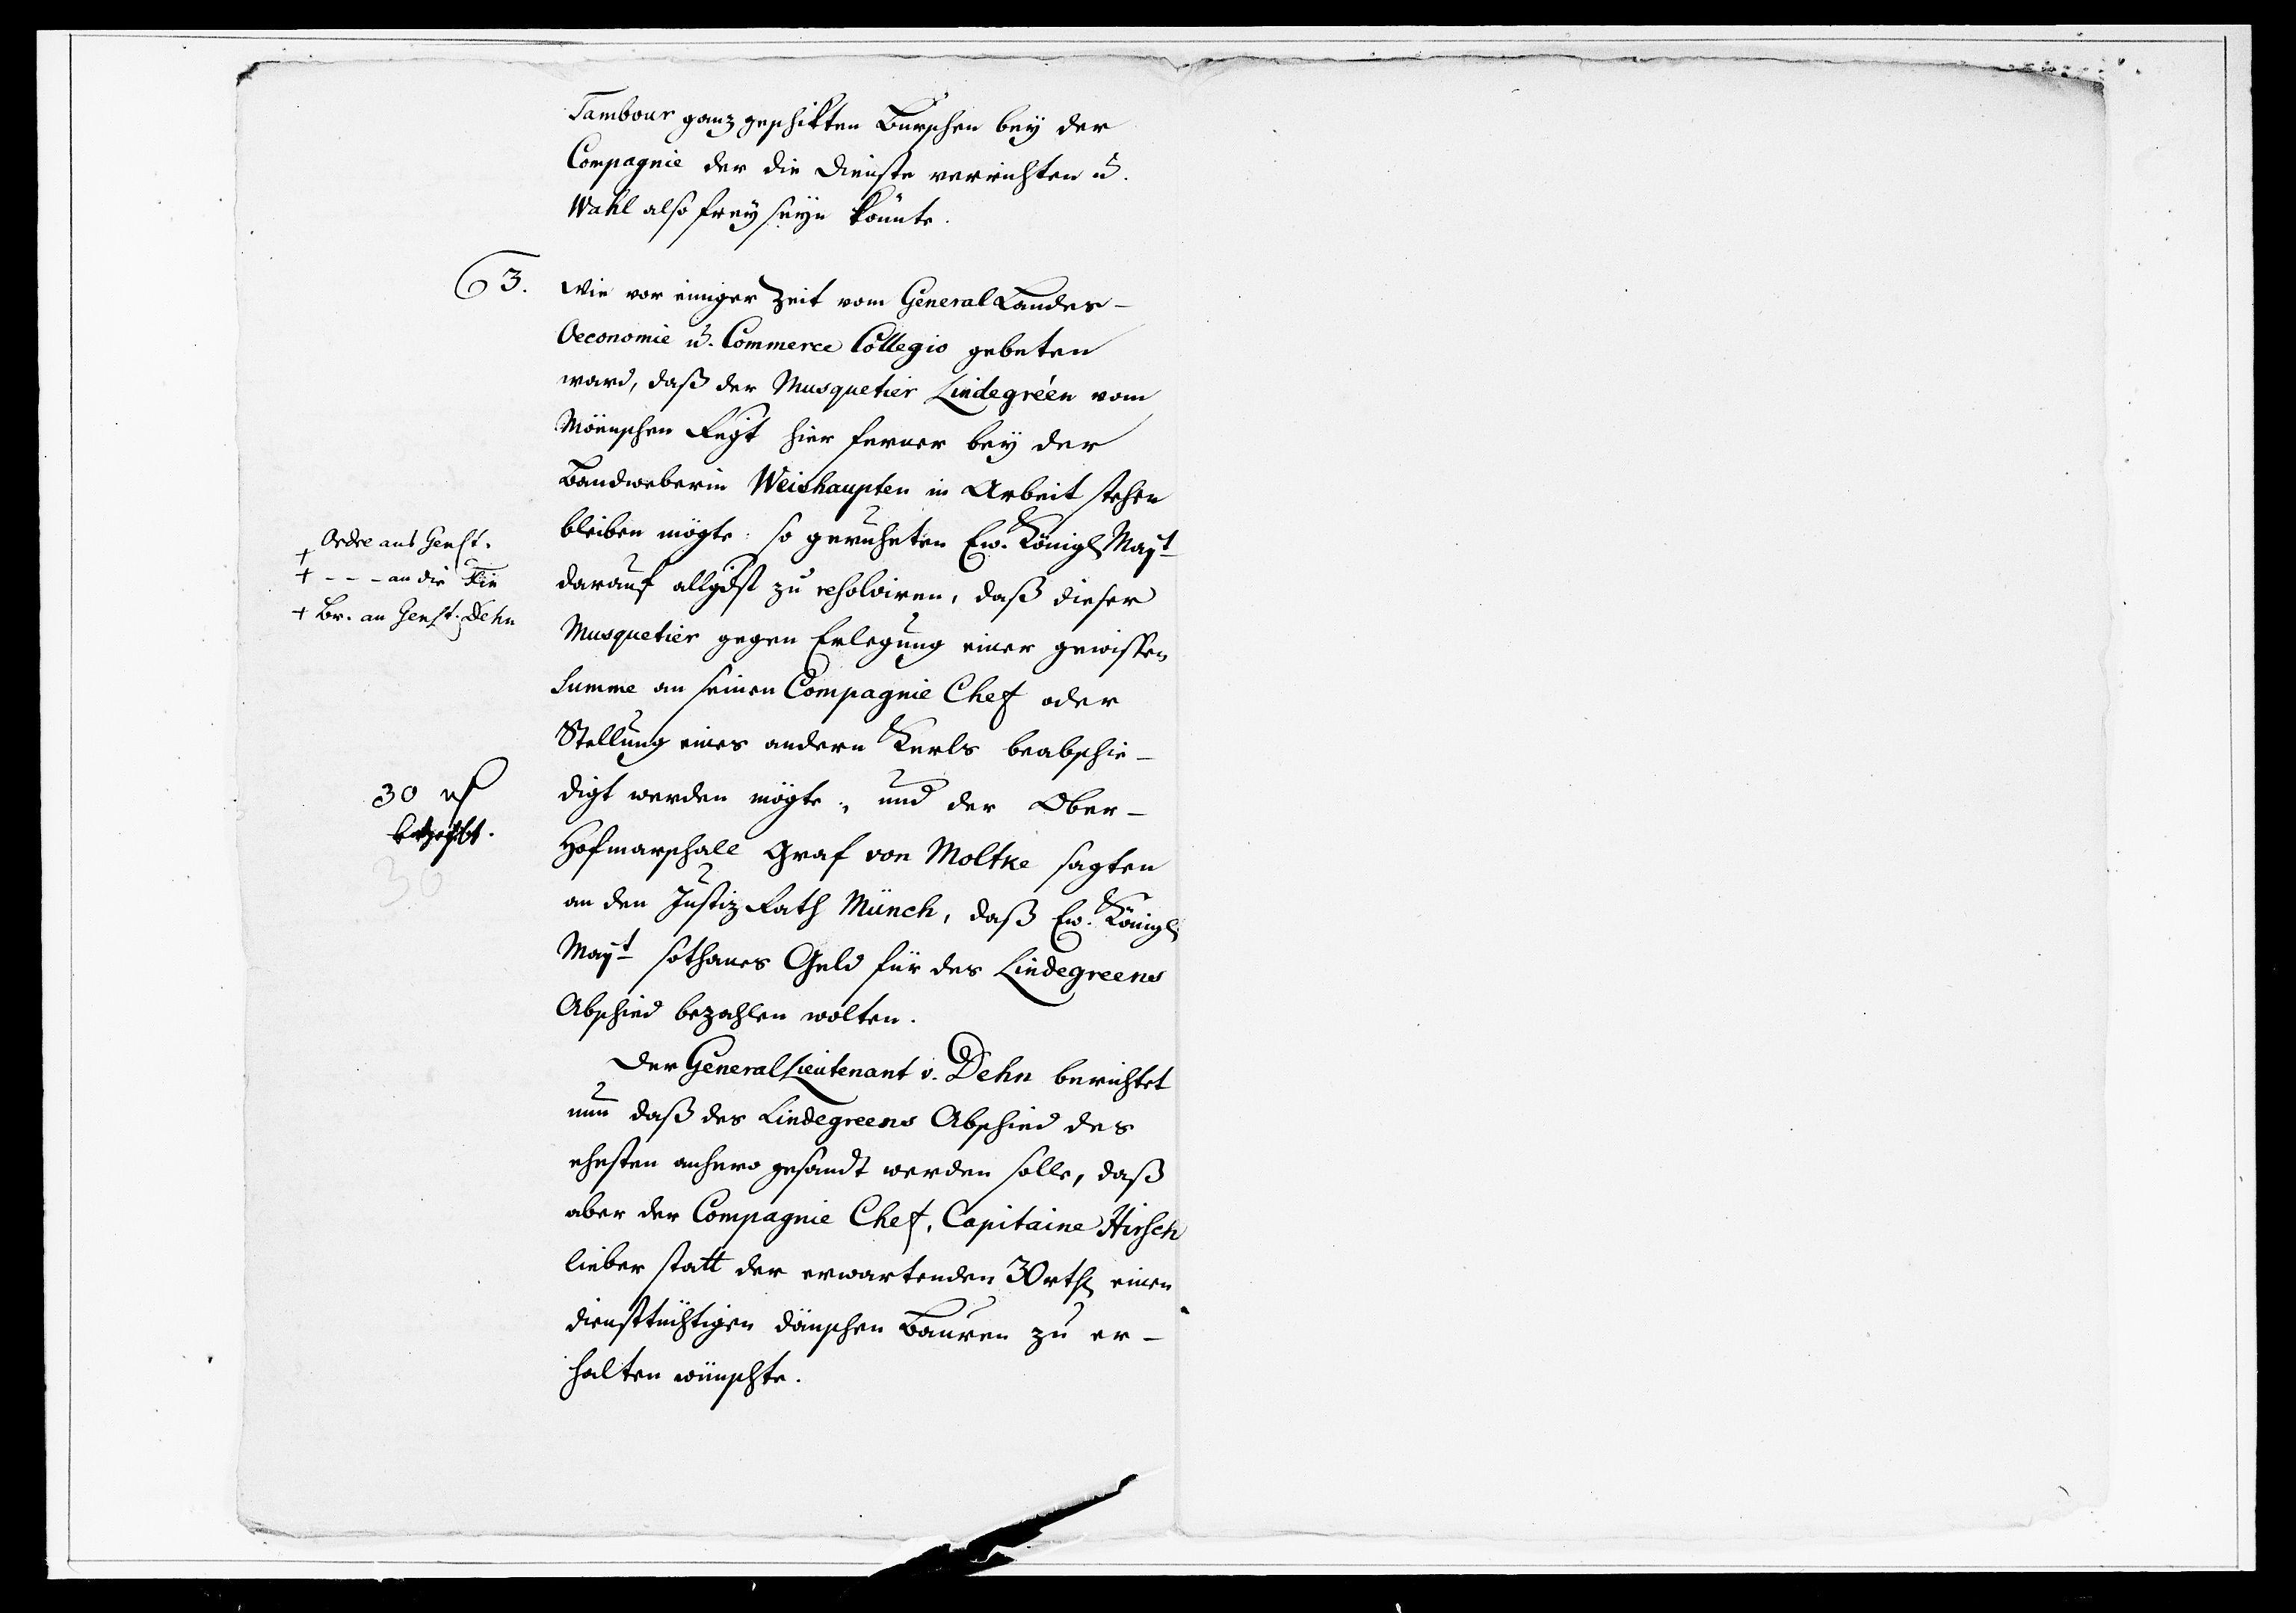 Tambour ganz geschikten Burschen bey der
Compagnie der die Dienste verrichten u.
Wahl also frey seyn könnte.
3. Wie vor einiger Zeit vom General Landes-
Oeconomie u. Commerce Collegio gebeten
ward, daß der Musquetier Lindegréen vom
Möenschen Regt hier ferner bey der
Bandweberin Weishaupten in Arbeit stehen
bleiben mögte: so geruheten Ew. Königl Mayt
darauf allgdst zu resolviren, daß dieser
Musquetier gegen Erlegung einer gewissen
Summe an seinen Compagnie Chef oder
Stellung eines andern Kerls beabschie-
digt werden mögte, und der Ober-
Hofmarschall Graf von Moltke sagten
an den Justiz Rath Münch, daß Ew. Königl
Mayt sothanes Geld für des Lindegreens
Abschied bezahlen wolten.
Der General Lieutenant v. Dehn berichtet
nun daß des Lindegreens Abschied des
ehesten anhero gesandt werden solle, daß
aber der Compagnie Chef, Capitaine Hirsch
lieber statt der erwartenden 30 rthl einen
diensttüchtigen dänschen Bauren zu er-
halten wünschte.
+ Ordre ans Genlt.
+ - - - an die
+ Br. an Genlt. Dehn
30
30